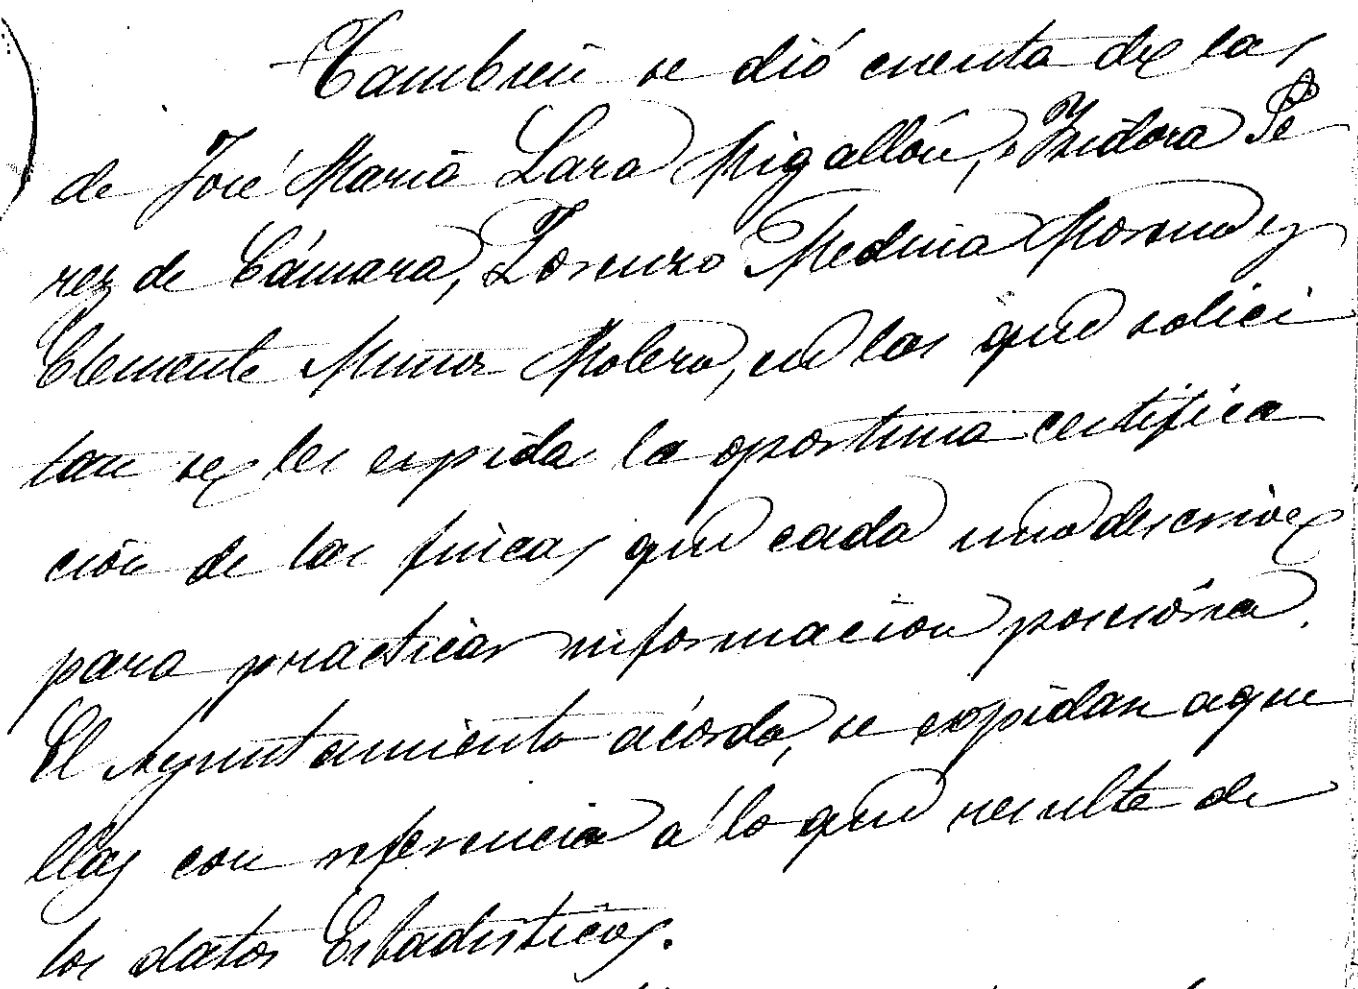 Tambien se dió cuenta de las
de José Maria Lara Migallón, Isidora Pe
rez de Cámara, Lorenzo Medina Moreno y
Clemente Munoz Molero, en las que solici
tan se les expida la oportuna certifica
ción de las fincas que cada uno describe
para practicar informacion posesoria.
El Ayuntamiento acordó, se expidan aque
llas con referencia a lo que resulte de
los datos Estadisticos.